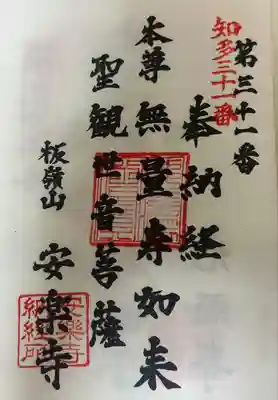 第三十一番
知多三十一番
奉納経
本尊無量寿如来
聖観世音菩薩
板嶺山
安楽寺
安楽寺
納経所